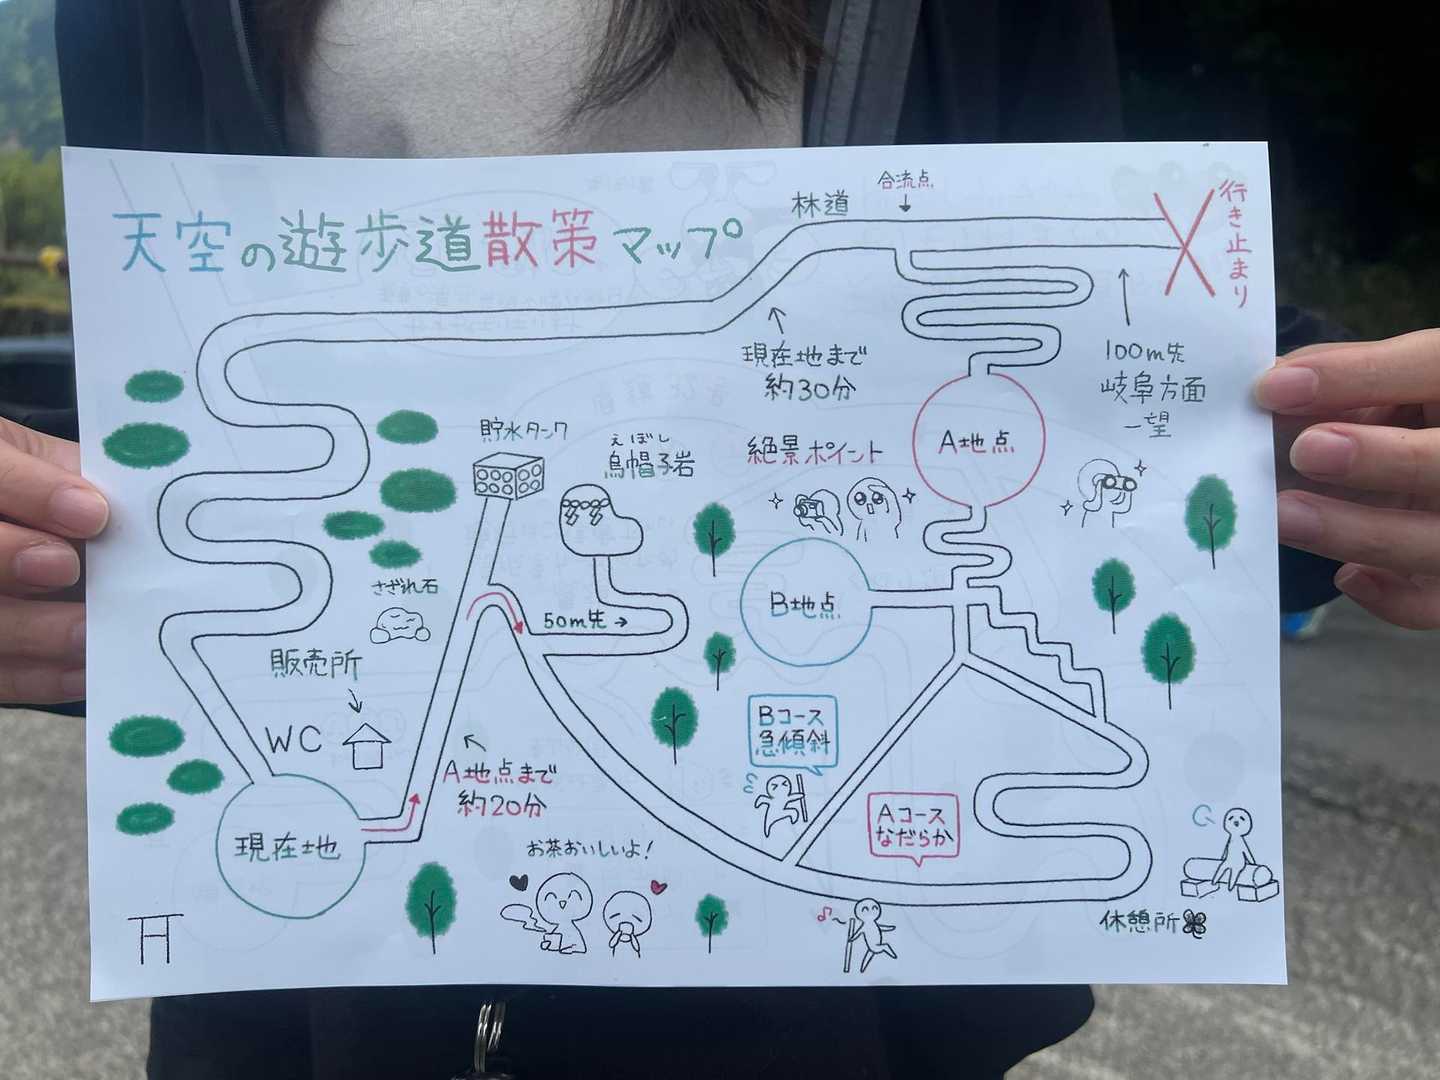 天空の遊歩道散策マップ
林道
合流点
行き止まり
現在地まで
約30分
100m先
岐阜方面
一望
貯水タンク
えぼし
烏帽子岩
絶景ポイント
A地点
さざれ石
50m先→
B地点
販売所
WC
Bコース
急傾斜
A地点まで
約20分
Aコース
なだらか
現在地
お茶おいしいよ！
休憩所